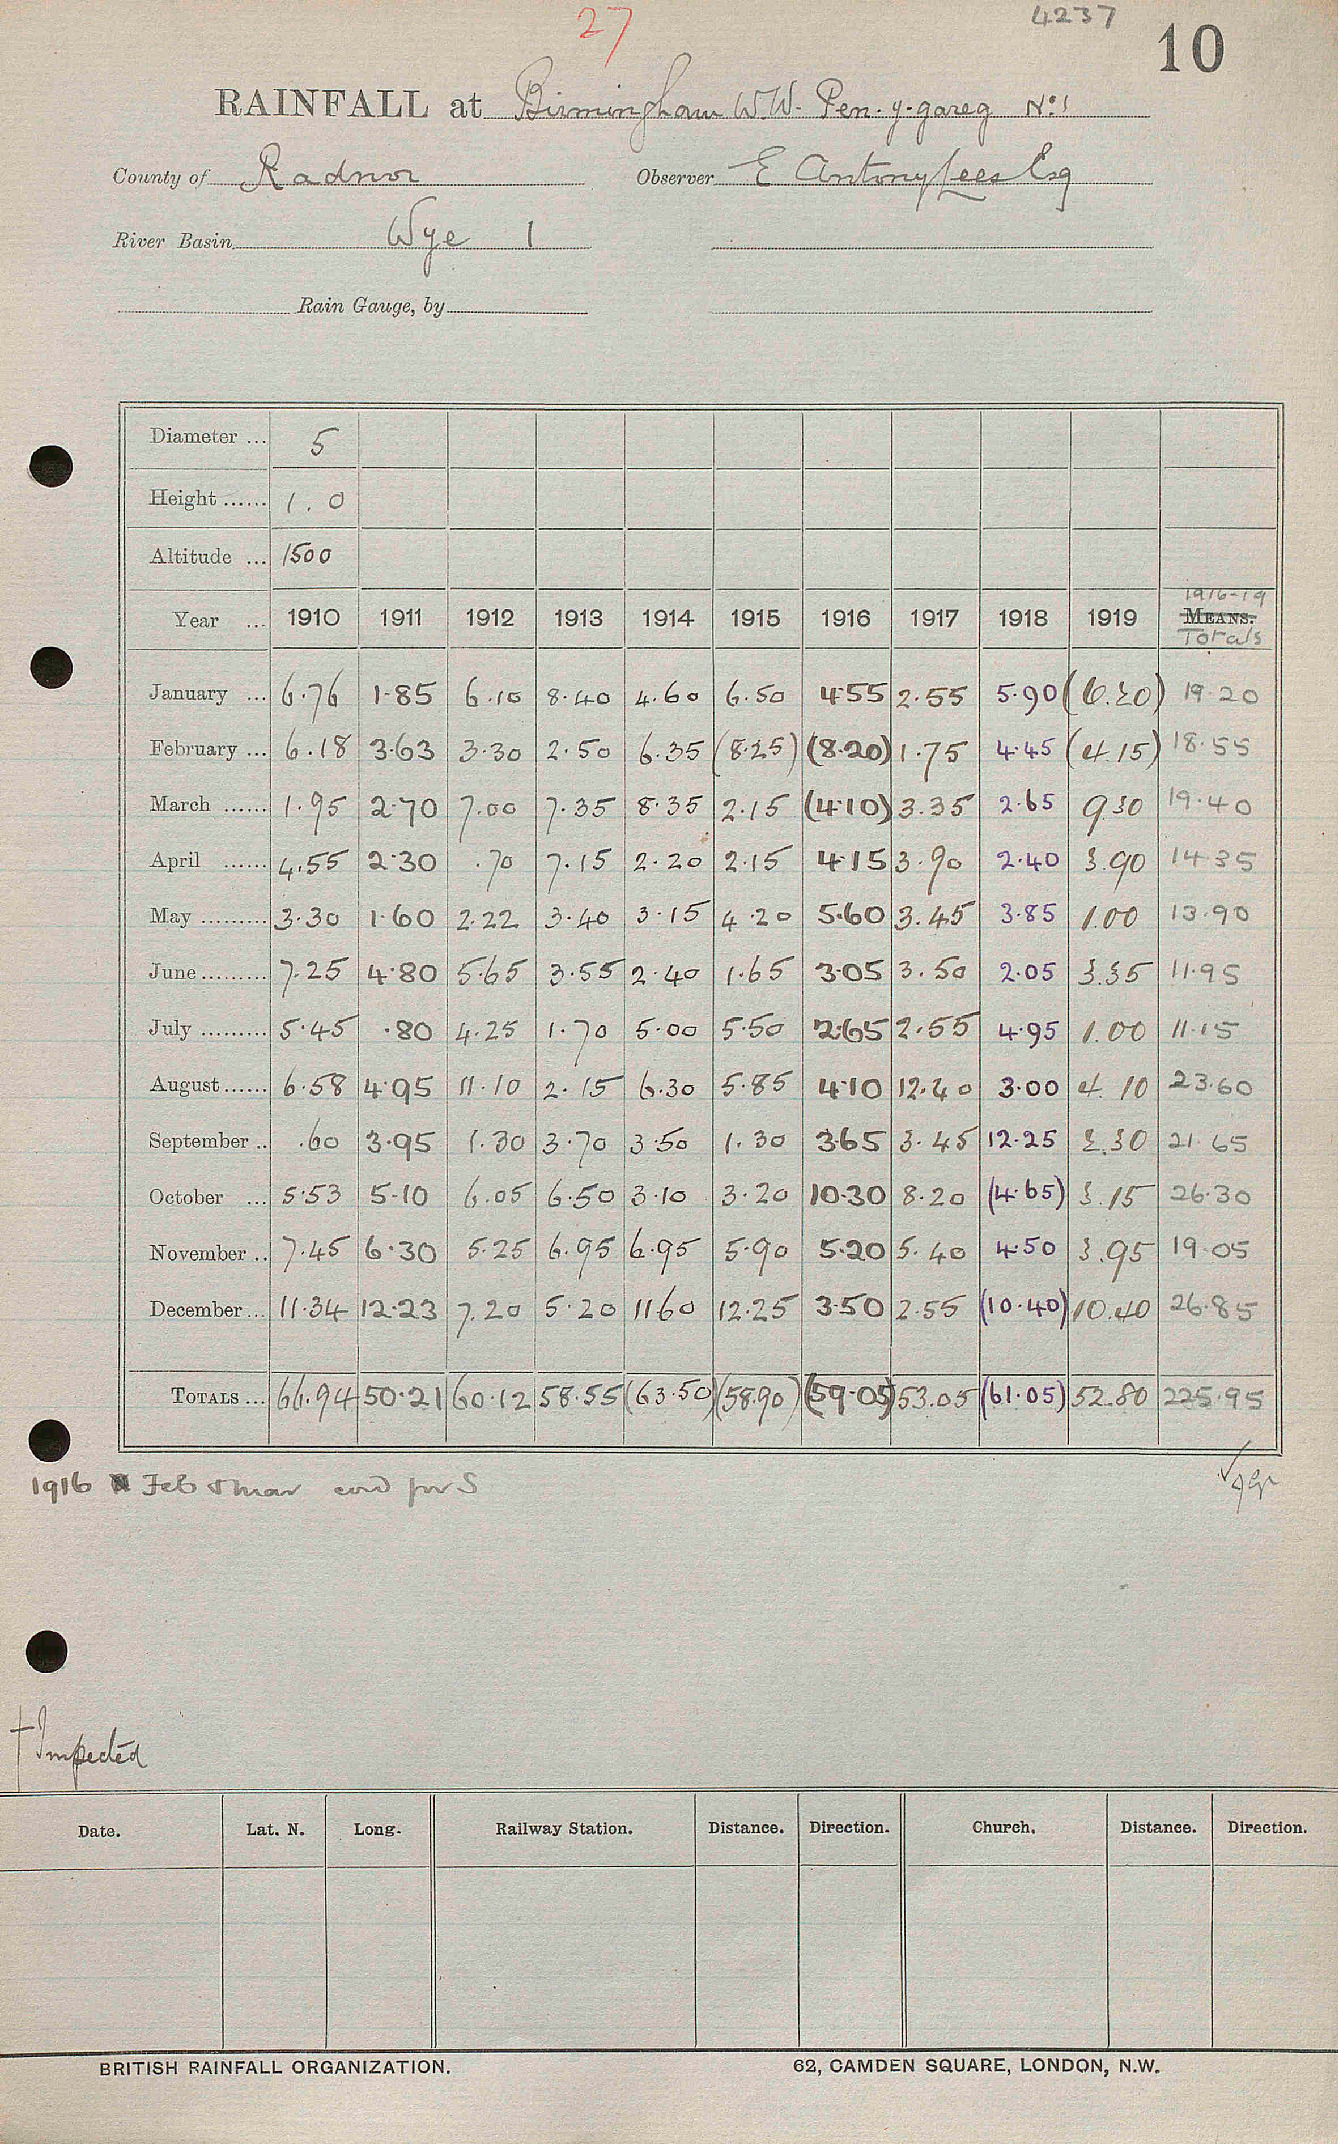 27
4237
10
RAINFALL at Birmingham W.W. Pen-y-gareg No. 1
County of Radnor Observer E Antony Lees Esq
River Basin Wye 1
Rain Gauge, by
Diameter ... 5
Height ...... 1.0
Altitude ... 1500
1916-19
Year ... 1910 1911 1912 1913 1914 1915 1916 1917 1918 1919 MEANS.
Totals
January ... 6.76 1.85 6.10 8.40 4.60 6.50 4.55 2.55 5.90 (6.20) 19.20
February ... 6.18 3.63 3.30 2.50 6.35 (8.25) (8.20) 1.75 4.45 (4.15) 18.55
March ...... 1.95 2.70 7.00 7.35 8.35 2.15 (4.10) 3.35 2.65 9.30 19.40
April ...... 4.55 2.30 .70 7.15 2.20 2.15 4.15 3.90 2.40 3.90 14.35
May ......... 3.30 1.60 2.22 3.40 3.15 4.20 5.60 3.45 3.85 1.00 13.90
June ......... 7.25 4.80 5.65 3.55 2.40 1.65 3.05 3.50 2.05 3.35 11.95
July ......... 5.45 .80 4.25 1.70 5.00 5.50 2.65 2.55 4.95 1.00 11.15
August ...... 6.58 4.95 11.10 2.15 6.30 5.85 4.10 12.40 3.00 4.10 23.60
September .. .60 3.95 1.30 3.70 3.50 1.30 3.65 3.45 12.25 2.30 21.65
October ... 5.53 5.10 6.05 6.50 3.10 3.20 10.30 8.20 (4.65) 3.15 26.30
November .. 7.45 6.30 5.25 6.95 6.95 5.90 5.20 5.40 4.50 3.95 19.05
December ... 11.34 12.23 7.20 5.20 11.60 12.25 3.50 2.55 (10.40) 10.40 26.85
TOTALS ... 66.94 50.21 60.12 58.55 (63.50) (58.90) (59.05) 53.05 (61.05) 52.80 225.95
1916 Feb & Mar cord for S
† Inspected
Date. Lat. N. Long. Railway Station. Distance. Direction. Church. Distance. Direction.
BRITISH RAINFALL ORGANIZATION. 62, CAMDEN SQUARE, LONDON, N.W.